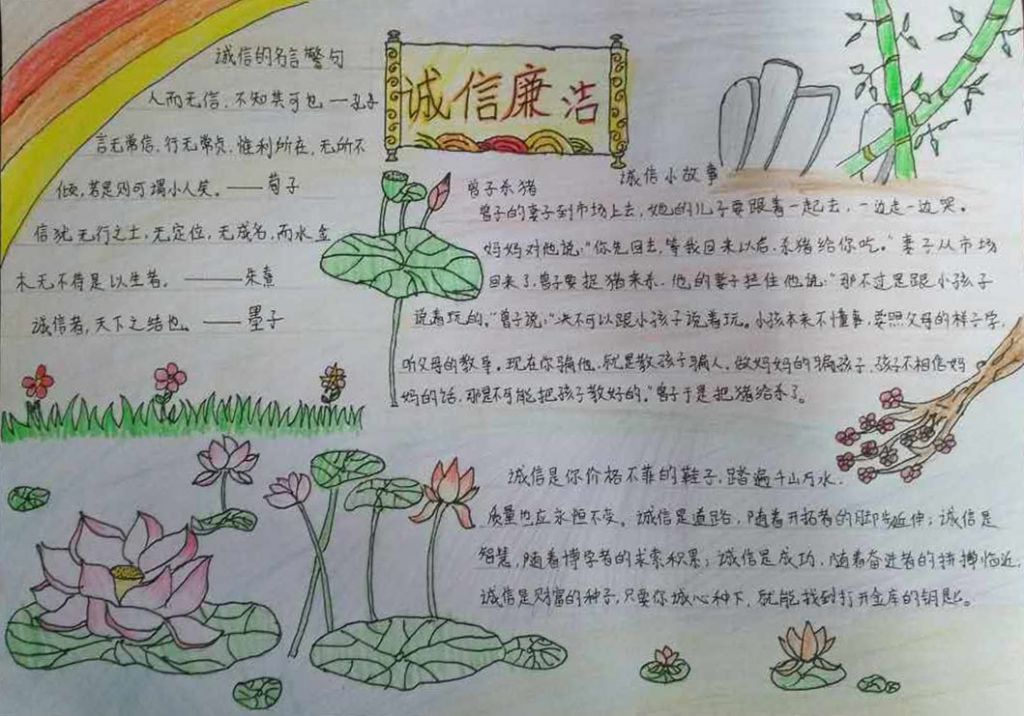 诚信廉洁
诚信的名言警句
人而无信,不知其可也 一孔子
言无常信,行无常贞,惟利所在,无所不
倾,若是则可谓小人矣。——荀子
信犹五行之土,无定位,无成名,而水金
木无不待是以生者。——朱熹
诚信者,天下之结也。——墨子
诚信小故事
曾子杀猪
曾子的妻子到市场上去,她的儿子要跟着一起去,一边走一边哭。
妈妈对他说:“你先回去,等我回来以后,杀猪给你吃。”妻子从市场
回来了,曾子要捉猪来杀,他的妻子拦住他说:“那不过是跟小孩子
说着玩的。”曾子说:“决不可以跟小孩子说着玩。小孩本来不懂事,要照父母的样子学,
听父母的教导。现在你骗他,就是教孩子骗人。做妈妈的骗孩子,孩子不相信妈
妈的话,那是不可能把孩子教好的。”曾子于是把猪给杀了。
诚信是你价格不菲的鞋子,踏遍千山万水,
质量也应永恒不变。诚信是道路,随着开拓者的脚步延伸;诚信是
智慧,随着博学者的求索积累;诚信是成功,随着奋进者的拼搏临近。
诚信是财富的种子,只要你诚心种下,就能找到打开金库的钥匙。